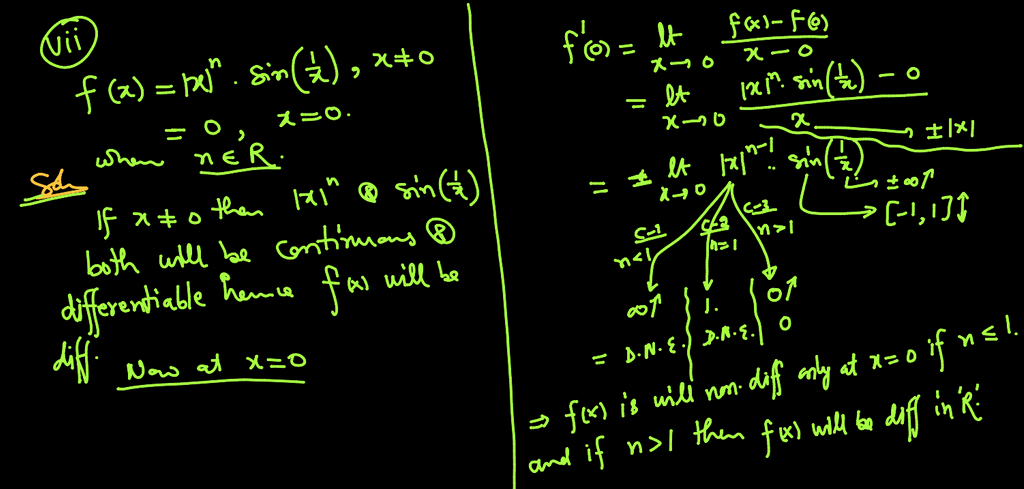 vii
f(x) = |x|ⁿ · sin(1/x), x≠0
= 0, x=0.
when n∈R.
Soln
If x≠0 then |x|ⁿ & sin(1/x)
both will be continuous &
differentiable hence f(x) will be
diff. Now at x=0
f'(0) = lt x→0 f(x) - f(0) / x - 0
= lt x→0 |x|ⁿ · sin(1/x) - 0 / x → ±|x|
= ± lt x→0 |x|ⁿ⁻¹ · sin(1/x)
±∞↑
[-1, 1]↕
C-1 n<1 C-2 n=1 C-3 n>1
∞↑ | 1. | 0↑
= D.N.E. | D.N.E. | 0
⇒ f(x) is will non. diff only at x=0 if n ≤ 1.
and if n>1 then f(x) will be diff in 'R'.